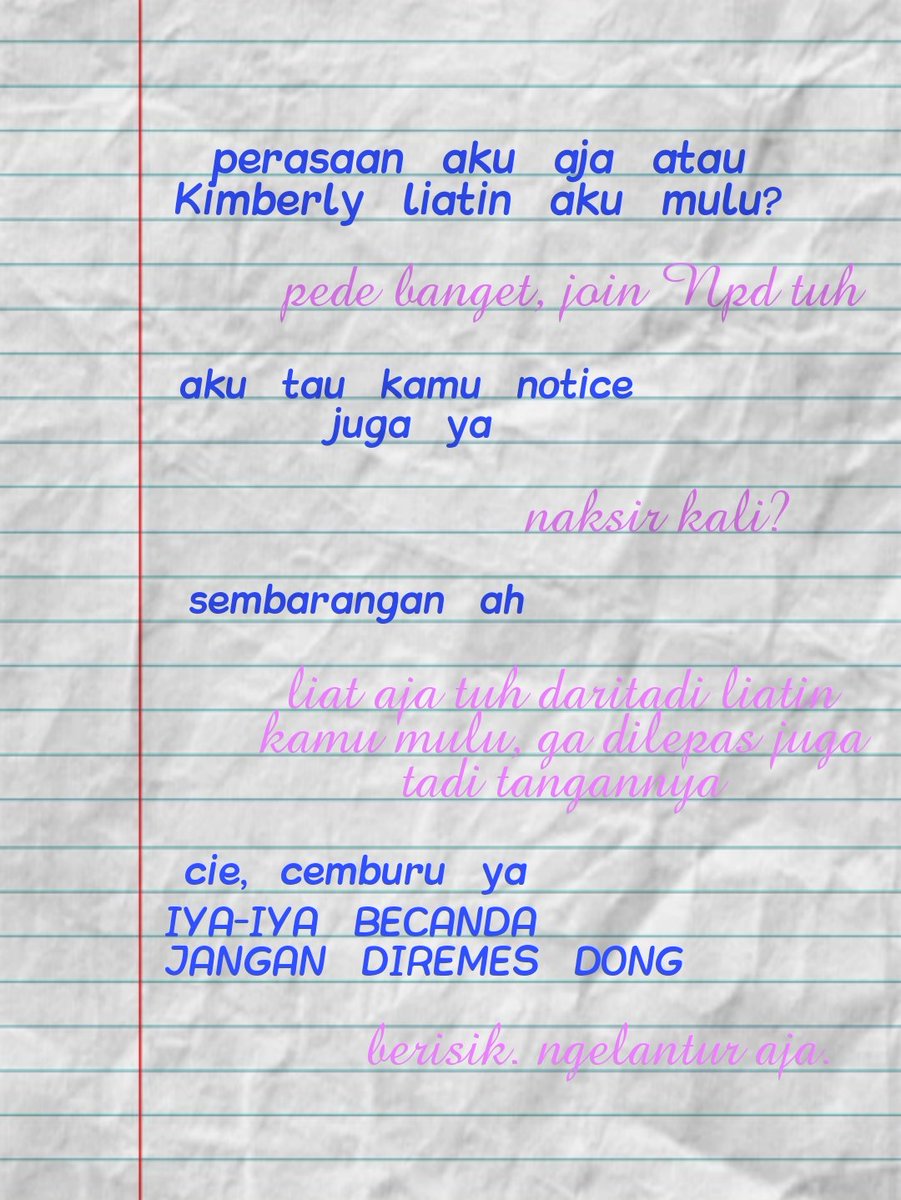 perasaan aku aja atau
Kimberly liatin aku mulu?
pede banget, join Npd tuh
aku tau kamu notice
juga ya
naksir kali?
sembarangan ah
liat aja tuh daritadi liatin
kamu mulu, ga dilepas juga
tadi tangannya
cie, cemburu ya
IYA-IYA BECANDA
JANGAN DIREMES DONG
berisik. ngelantur aja.